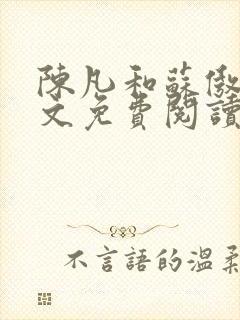 陳凡和蘇傲
文免費閱讀
不言語的溫柔